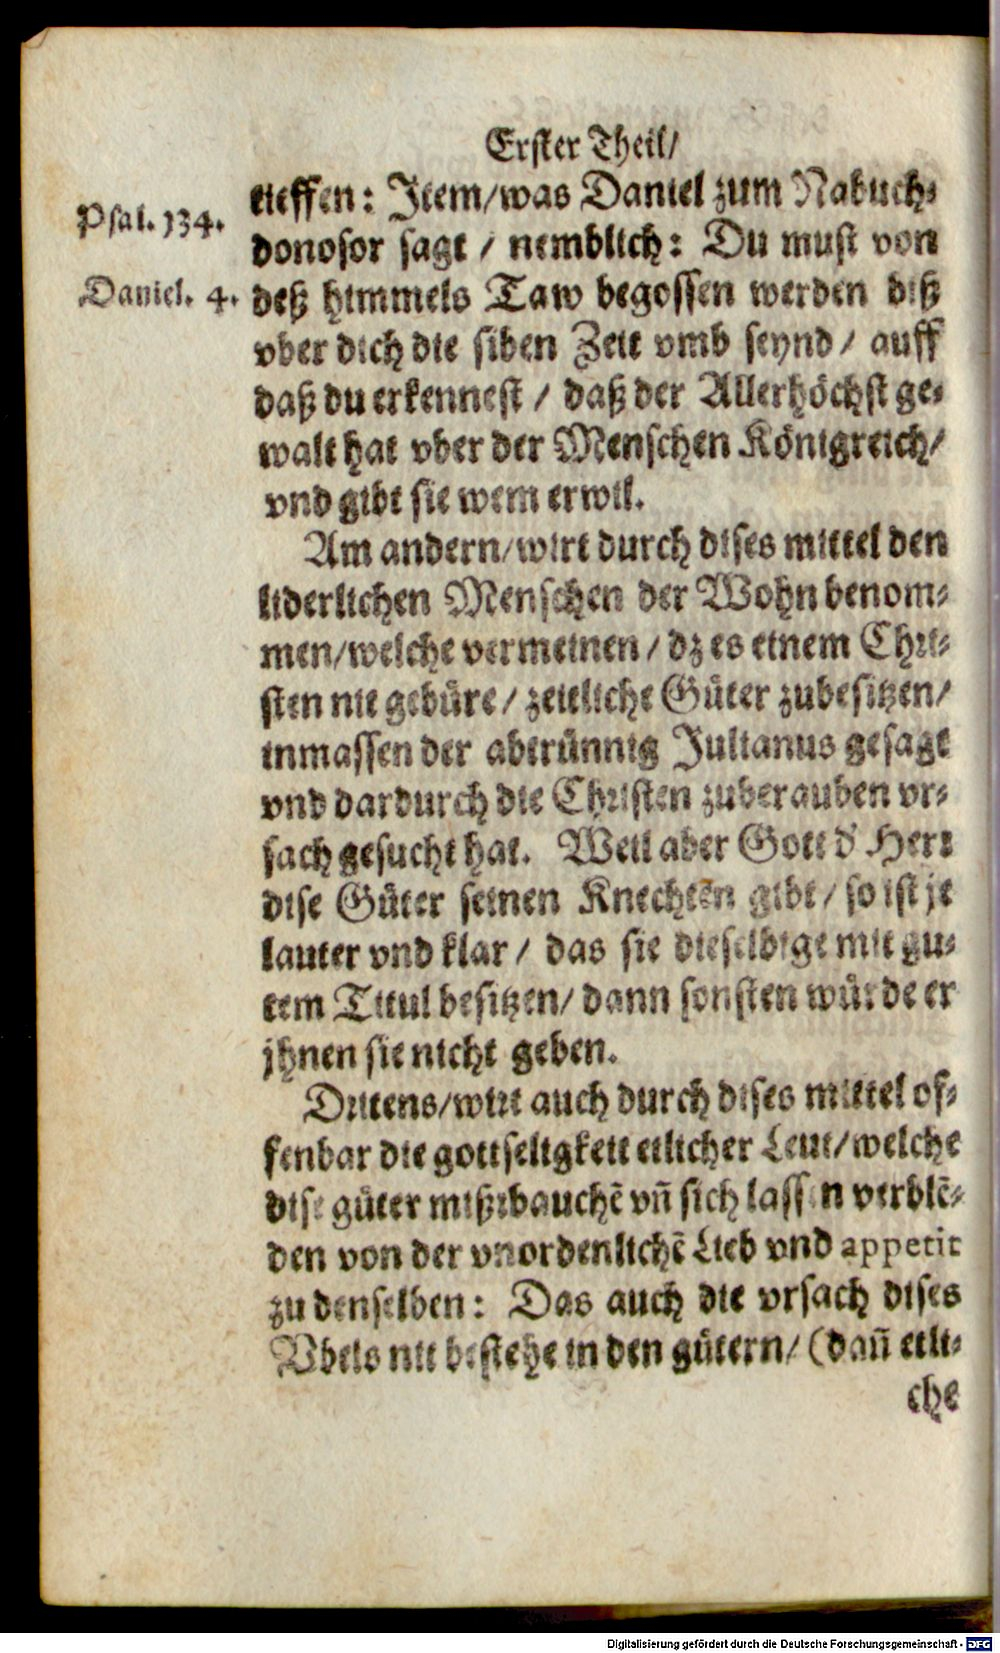 Erster Theil/
Psal. 134.
tieffen: Item/was Daniel zum Nabuch-
donosor sagt / nemblich: Du must von
Daniel. 4.
deß himmels Taw begossen werden diß
vber dich die siben Zeit vmb seynd / auff
daß du erkennest / daß der Allerhöchst ge-
walt hat vber der Menschen Königreich/
vnd gibt sie wem er wil.
Am andern/wirt durch dises mittel den
liderlichen Menschen der Wohn benom-
men/welche vermeinen / dz es einem Chri-
sten nit gebüre / zeitliche Güter zubesitzen/
inmassen der abtrünnig Julianus gesagt
vnd dardurch die Christen zuberauben vr-
sach gesucht hat. Weil aber Gott d' Herr
dise Güter seinen Knechten gibt / so ist je
lauter vnd klar / das sie dieselbige mit gu-
tem Titul besitzen/ dann sonsten würde er
jhnen sie nicht geben.
Drittens/wirt auch durch dises mittel of-
fenbar die gottseligkeit etlicher Leut/welche
dise güter mißrbauchē vn̄ sich lassen verblē-
den von der vnordenlichē Lieb vnd appetit
zu denselben: Das auch die vrsach dises
Vbels nit bestehe in den gütern/ (dan̄ etli-
che
Digitalisierung gefördert durch die Deutsche Forschungsgemeinschaft - DFG